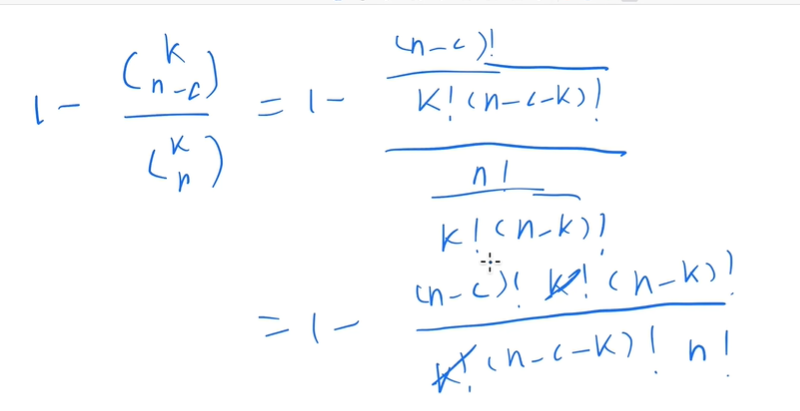 1 - (k n-c) / (k n) = 1 - ((n-c)! / K!(n-c-k)!) / (n! / k!(n-k)!)
= 1 - (n-c)! k! (n-k)! / k! (n-c-k)! n!